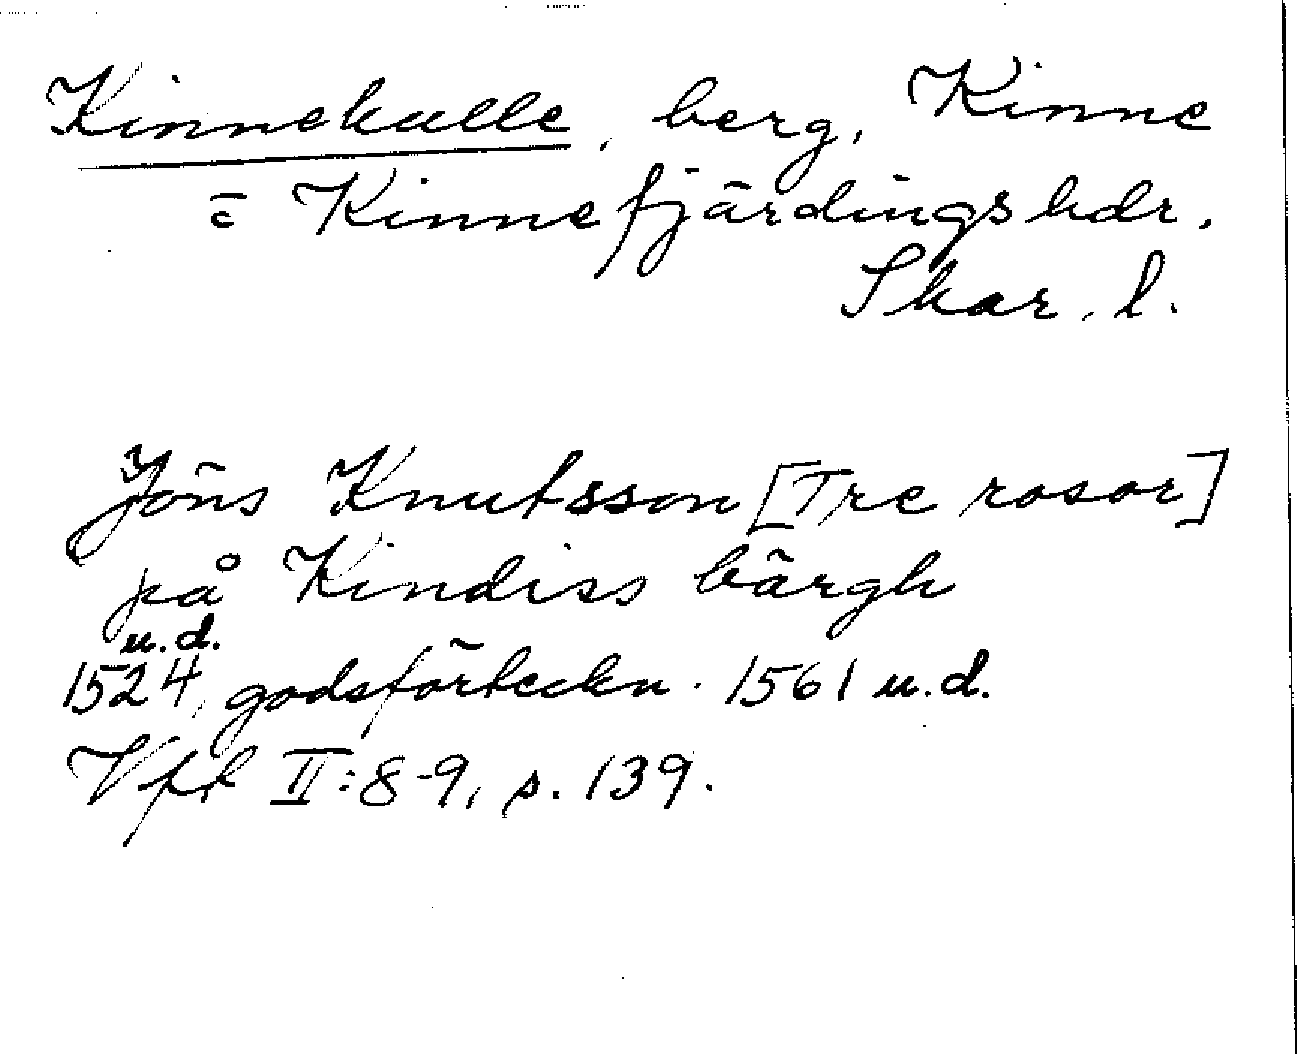 Kinnekulle, berg, Kinne
o. Kinnefjärdingshdr,
Skar. l.
Jöns Knutsson [Tre rosor]
på Kindiss bärgh
u.d.
1524, godsförteckn. 1561 u.d.
Vft II:8-9, s. 139.